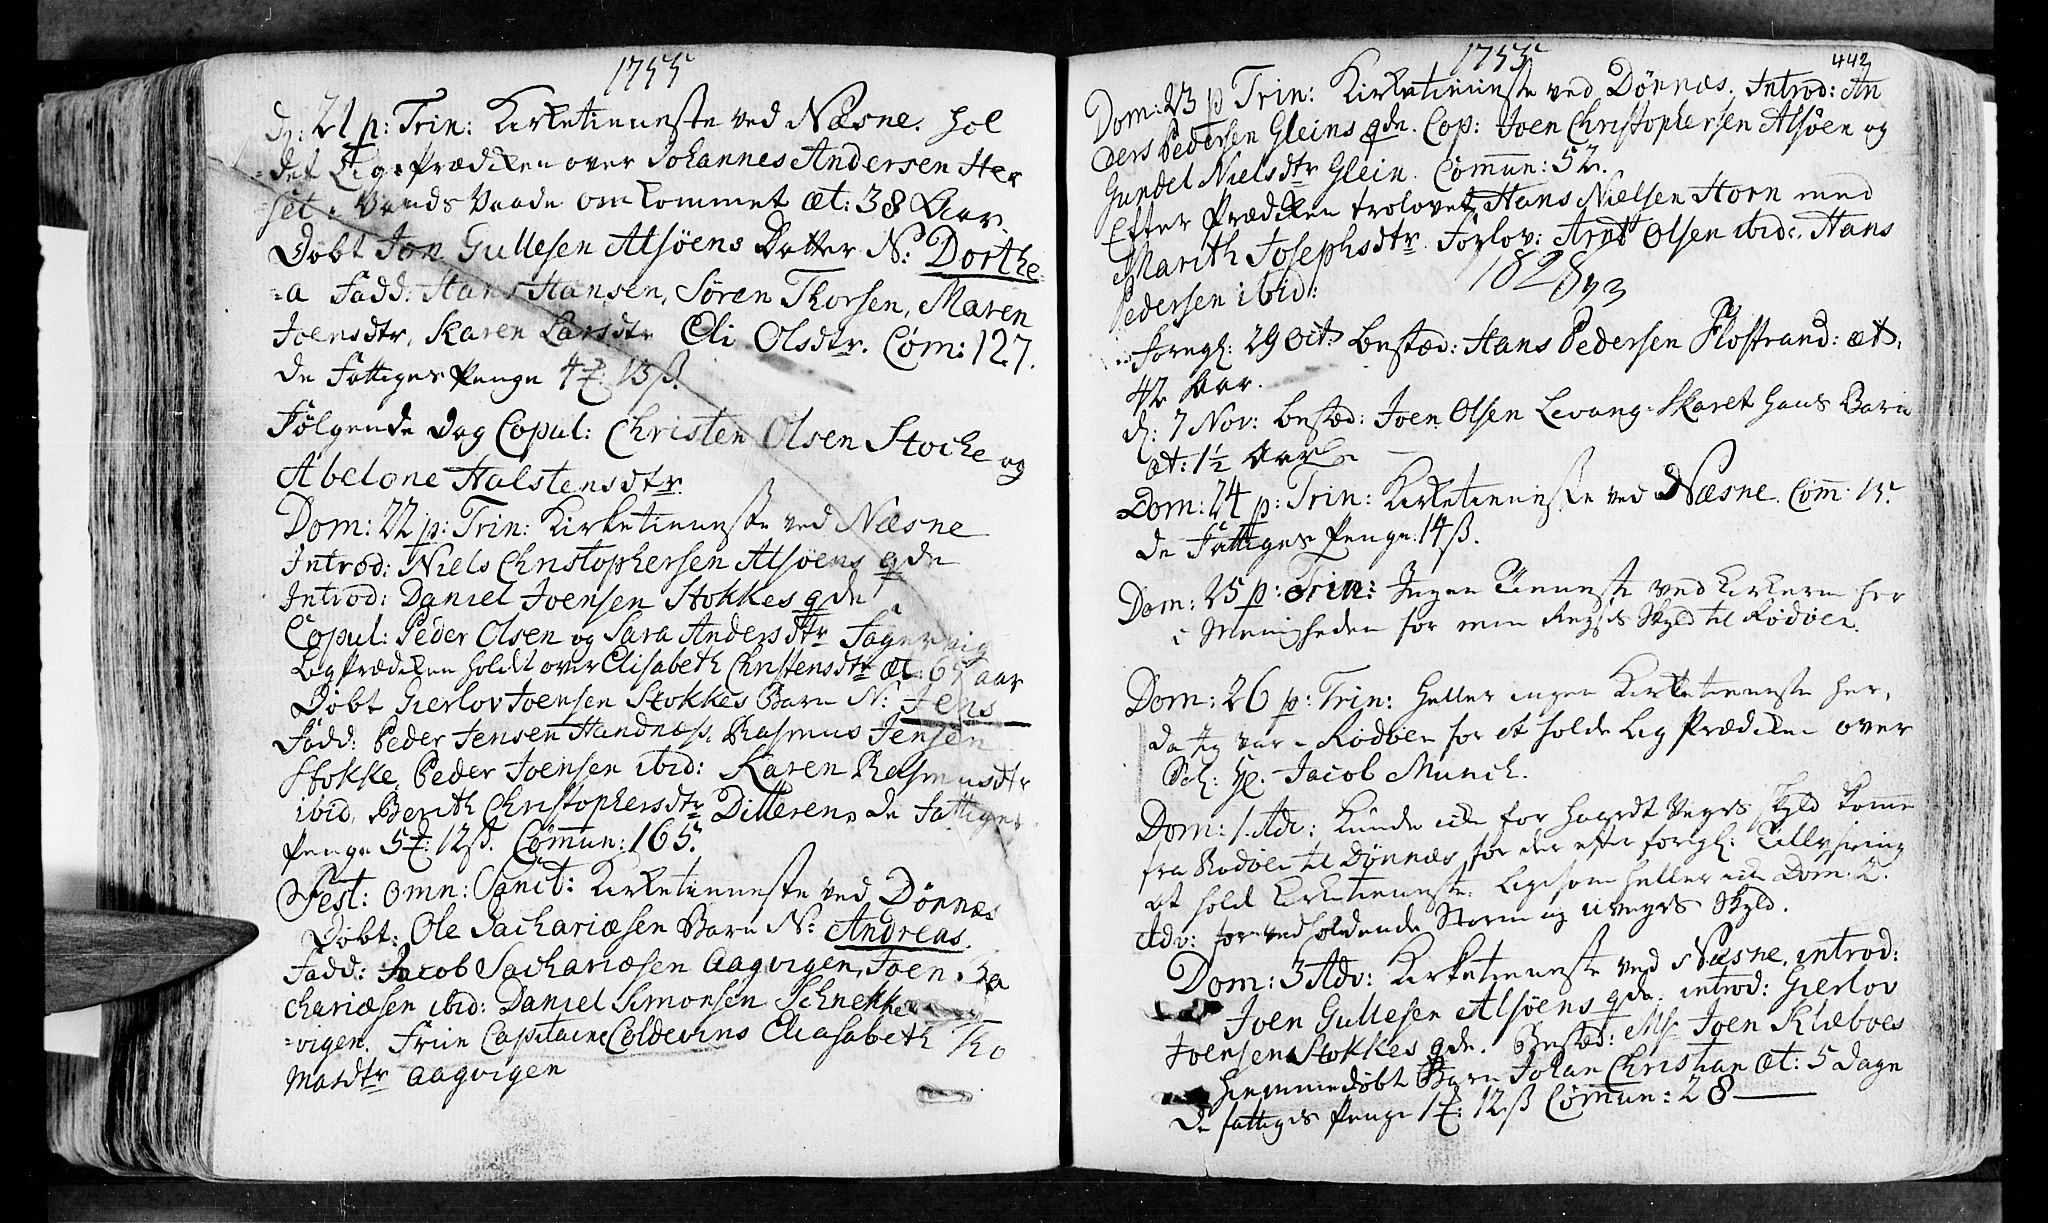 1755
D: 21 p: Trin: Kirketienneste ved Næsne. hol
det Lig-Prædiken over Johannes Andersen Her
set i Vands Vaade omkommet æt: 38 Aar.
Døbt Jon Gullesen Alsøens Datter N: Dorthe
=a Fadd: Hans Hansen, Søren Thorsen, Maren
Joensdtr, Karen Larsdtr Eli Olsdtr. Com: 127.
De Fattiges Penge 4 13 ß.
Følgende Dag Copul: Christen Olsen Stocke og
Abelone Halstensdtr.
Dom: 22 p: Trin: Kirketienneste ved Næsne
Introd: Niels Christophersen Alsøens qde
Introd: Daniel Joensen Stokkes qde
Copul: Peder Olsen og Sara Andersdtr Fagervig
Lig Prædiken holdt over Elisabeth Christensdtr æt: 65 aar
Døbt Gierlov Joensen Stokkes Barn N: Jens
Fadd: Peder Jensen Handnæs, Rasmus Jensen
Stokke, Peder Joensen ibid: Karen Rasmusdtr
ibid, Berith Christophersdtr Ditteren, De Fattiges
Penge 5 12 ß. Commun: 165.
Fest: omn: Sanct: Kirketienneste ved Dønnæs
Døbt: Ole Sachariæsen Barn N: Andreas.
Fadd: Jacob Sachariæsen Aagvigen, Joen Sa
chariæsen ibid: Daniel Simonsen Schnekke
=vigen. Friie Capitaine Coldevins Eliasabeth Tho
masdtr Aagvigen
1755
442
Dom: 23 p Trin: Kirketienneste ved Dønnæs. Introd: An
ders Pedersen Gleins qde. Cop: Joen Christophersen Alsøen og
Gundel Nielsdtr Glein. Commun: 52.
Efter Prædiken trolovet Hans Nielsen Horn med
Marith Josephsdtr Forlov: Arnt Olsen ibid: Hans
Pedersen ibid:
Foregl: 29 Oct: Bestæd: Hans Pedersen Flostrand: æt.
42 Aar.
d: 7 Nov: Bestæd: Joen Olsen Levang-Skaret hans Barn
æt: 1½ Aar
Dom: 24 p: Trin: Kirketienneste ved Næsne. Comm: 15
De Fattiges Penge: 14 ß.
Dom: 25 p: Trin: Ingen Tienneste ved Kirkerne her
i Menigheden for min Reyses Skyld til Rødøen.
Dom: 26 p: Trin: Heller ingen Kirketienneste her,
da Jeg var i Rødøen for at holde Lig Prædiken over
Sal: Hr. Jacob Munch.
Dom: 1. Adv: Kunde ei for haardt Veyrs Skyld komme
fra Rødøen til Dønnæs for der efter foregl: Tillysning
at holde Kirketienneste. Ligesom heller ei Dom: 2.
Adv: for vedholdende Storm og uveyrs Skyld.
Dom: 3 Adv: Kirketienneste ved Næsne, introd:
Joen Gullesen Alsøens qde. introd: Gierlov
Joensen Stokkes qde. Bestæd: Joen Klæboes
hiemmedøbt Barn Johan Christian æt: 5 Dage
De fattiges Penge 1 12 ß Commun: 28